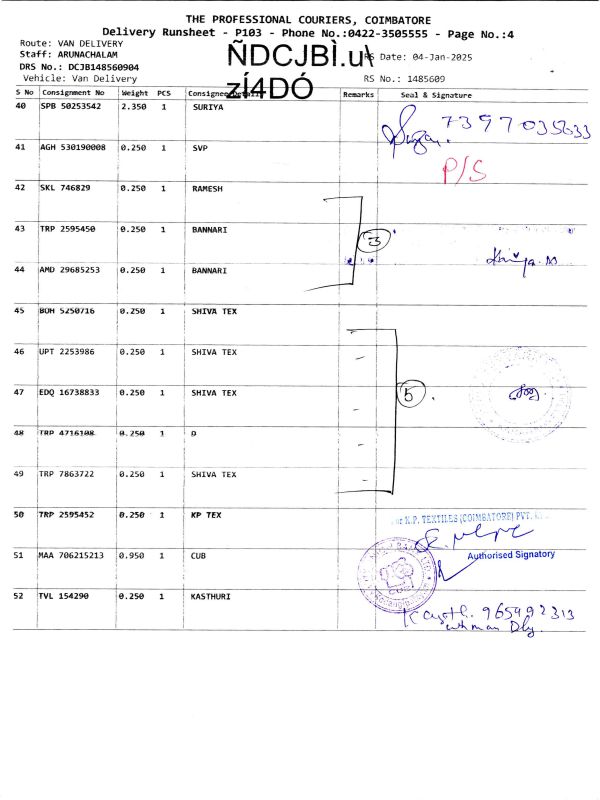 THE PROFESSIONAL COURIERS, COIMBATORE
Delivery Runsheet - P103 - Phone No.:0422-3505555 - Page No.:4
Route: VAN DELIVERY
Staff: ARUNACHALAM
ÑDCJBÌ.u\
RS Date: 04-Jan-2025
DRS No.: DCJB148560904
Vehicle: Van Delivery
zÍ4DÓ
RS No.: 1485609
S No Consignment No Weight PCS Consignee Details Remarks Seal & Signature
40 SPB 50253542 2.350 1 SURIYA 7397035633
41 AGH 530190008 0.250 1 SVP P/S
42 SKL 746829 0.250 1 RAMESH
43 TRP 2595450 0.250 1 BANNARI 3
44 AMD 29685253 0.250 1 BANNARI
45 BOH 5250716 0.250 1 SHIVA TEX
46 UPT 2253986 0.250 1 SHIVA TEX
47 EDQ 16738833 0.250 1 SHIVA TEX 5
48 TRP 4716108 0.250 1 D
49 TRP 7863722 0.250 1 SHIVA TEX
50 TRP 2595452 0.250 1 KP TEX
For K.P. TEXTILES (COIMBATORE) PVT. LTD.
Authorised Signatory
51 MAA 706215213 0.950 1 CUB
52 TVL 154290 0.250 1 KASTHURI
965492313